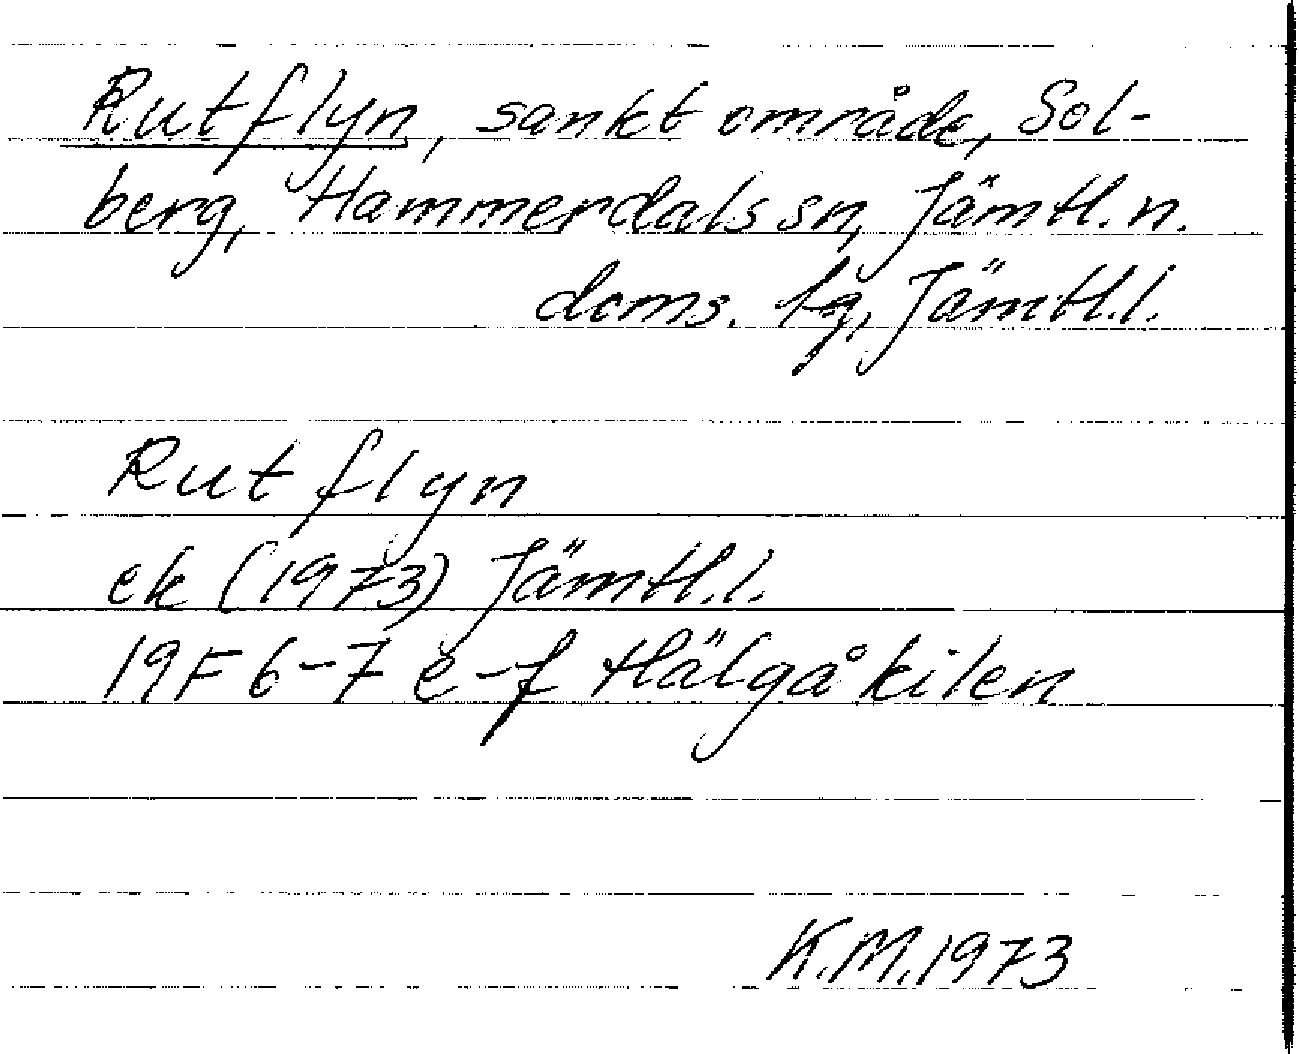 Rutflyn, sankt område, Sol-
berg, Hammerdals sn, Jämtl. n.
doms. tg, Jämtl.l.
Rutflyn
ek (1973) Jämtl.l.
19F 6-7 e-f Hälgåkilen
K.M.1973